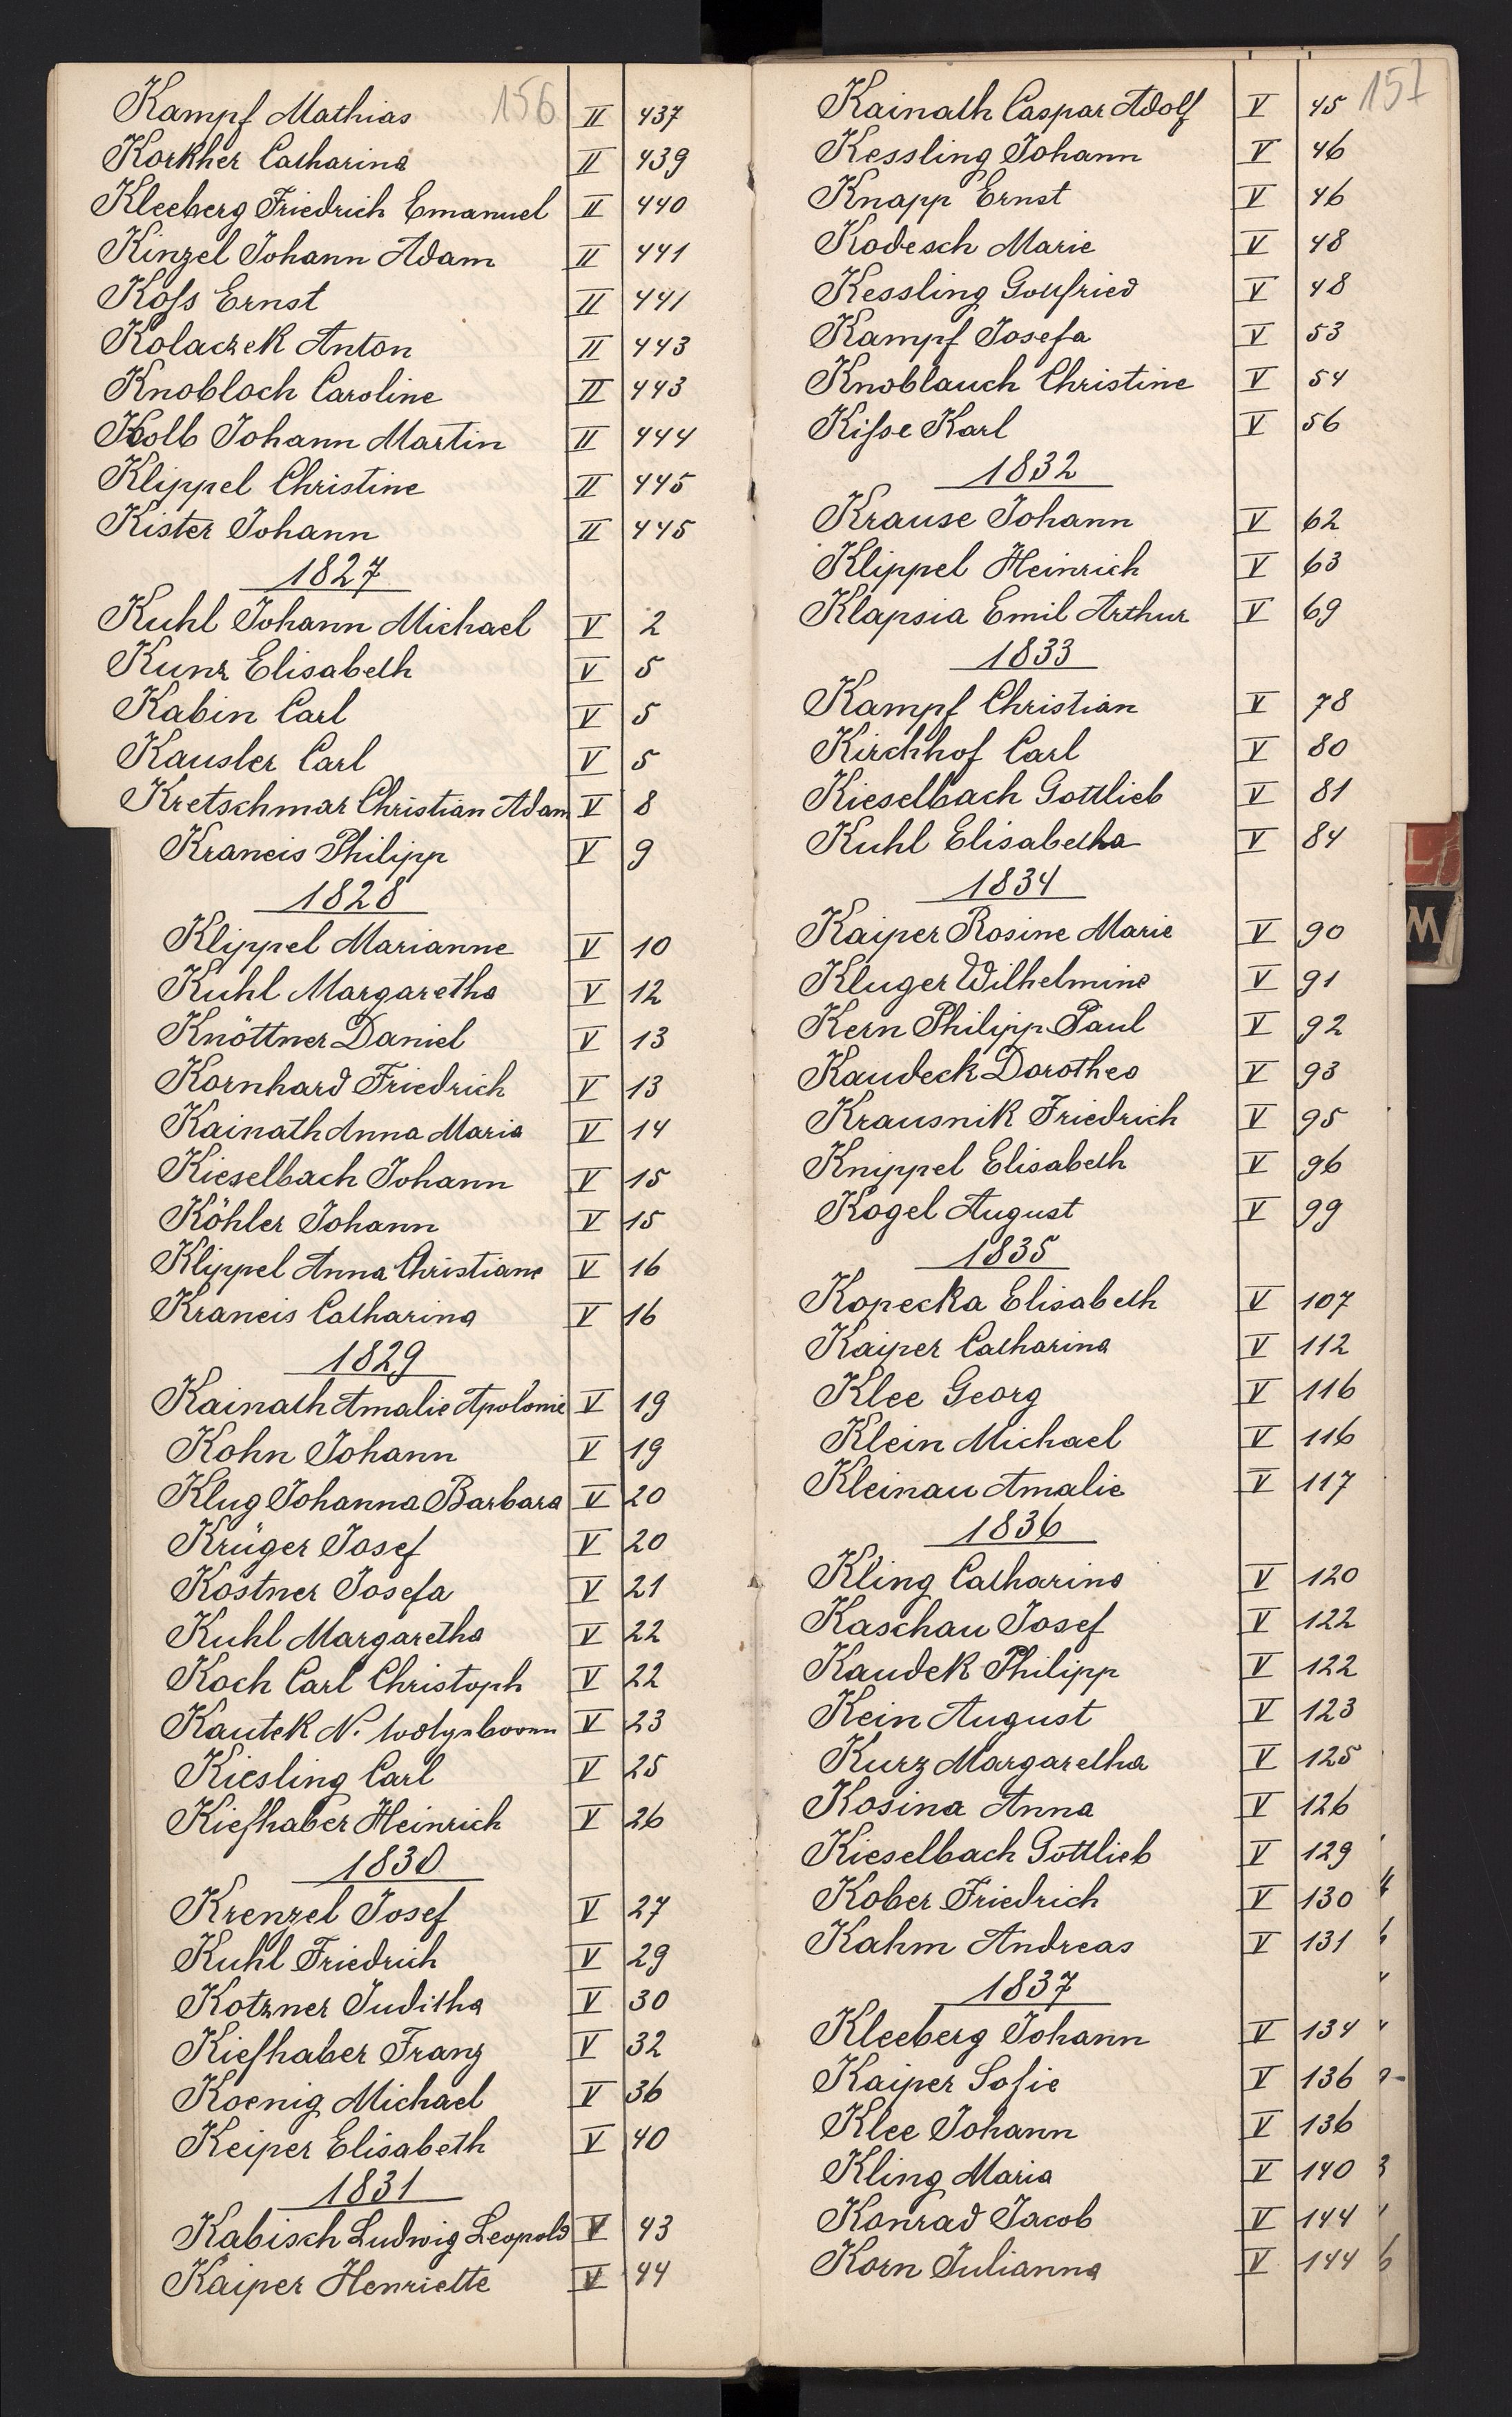 156
Kampf Mathias II 437
Korkher Catharina II 439
Kleeberg Friedrich Emanuel II 440
Kinzel Johann Adam II 441
Koſs Ernst II 441
Kolaczek Anton II 443
Knobloch Caroline II 443
Kolb Johann Martin II 444
Klippel Christine II 445
Kister Johann II 445
1827
Kuhl Johann Michael V 2
Kunz Elisabeth V 5
Kabin Carl V 5
Kausler Carl V 5
Kretschmar Christian Adam V 8
Krancis Philipp V 9
1828
Klippel Marianne V 10
Kuhl Margaretha V 12
Knöttner Daniel V 13
Kornhard Friedrich V 13
Kainath Anna Maria V 14
Kieselbach Johann V 15
Köhler Johann V 15
Klippel Anna Christiane V 16
Krancis Catharina V 16
1829
Kainath Amalie Apolonie V 19
Kohn Johann V 19
Klug Johanna Barbara V 20
Krüger Josef V 20
Köstner Josefa V 21
Kuhl Margaretha V 22
Koch Carl Christoph V 22
Kautek N. V 23
Kiesling Carl V 25
Kiefhaber Heinrich V 26
1830
Krenzel Josef V 27
Kuhl Friedrich V 29
Kotzner Juditha V 30
Kiefhaber Franz V 32
Koenig Michael V 36
Keiper Elisabeth V 40
1831
Kabisch Ludwig Leopold V 43
Kaiper Henriette V 44
157
Kainath Caspar Adolf V 45
Kessling Johann V 46
Knapp Ernst V 46
Kodesch Marie V 48
Kessling Gottfried V 48
Kampf Josefa V 53
Knoblauch Christine V 54
Kiſse Karl V 56
1832
Krause Johann V 62
Klippel Heinrich V 63
Klapsia Emil Arthur V 69
1833
Kampf Christian V 78
Kirchhof Carl V 80
Kieselbach Gottlieb V 81
Kuhl Elisabetha V 84
1834
Kaiper Rosine Marie V 90
Kluger Wilhelmine V 91
Kern Philipp Paul V 92
Kaudeck Dorothea V 93
Krausnik Friedrich V 95
Knippel Elisabeth V 96
Kogel August V 99
1835
Kopecka Elisabeth V 107
Kaiper Catharina V 112
Klee Georg V 116
Klein Michael V 116
Kleinau Amalie V 117
1836
Kling Catharina V 120
Kaschau Josef V 122
Kaudek Philipp V 122
Kein August V 123
Kurz Margaretha V 125
Kosina Anna V 126
Kieselbach Gottlieb V 129
Kober Friedrich V 130
Kahm Andreas V 131
1837
Kleeberg Johann V 134
Kaiper Sofie V 136
Klee Johann V 136
Kling Maria V 140
Konrad Jacob V 144
Korn Julianna V 144
L
M